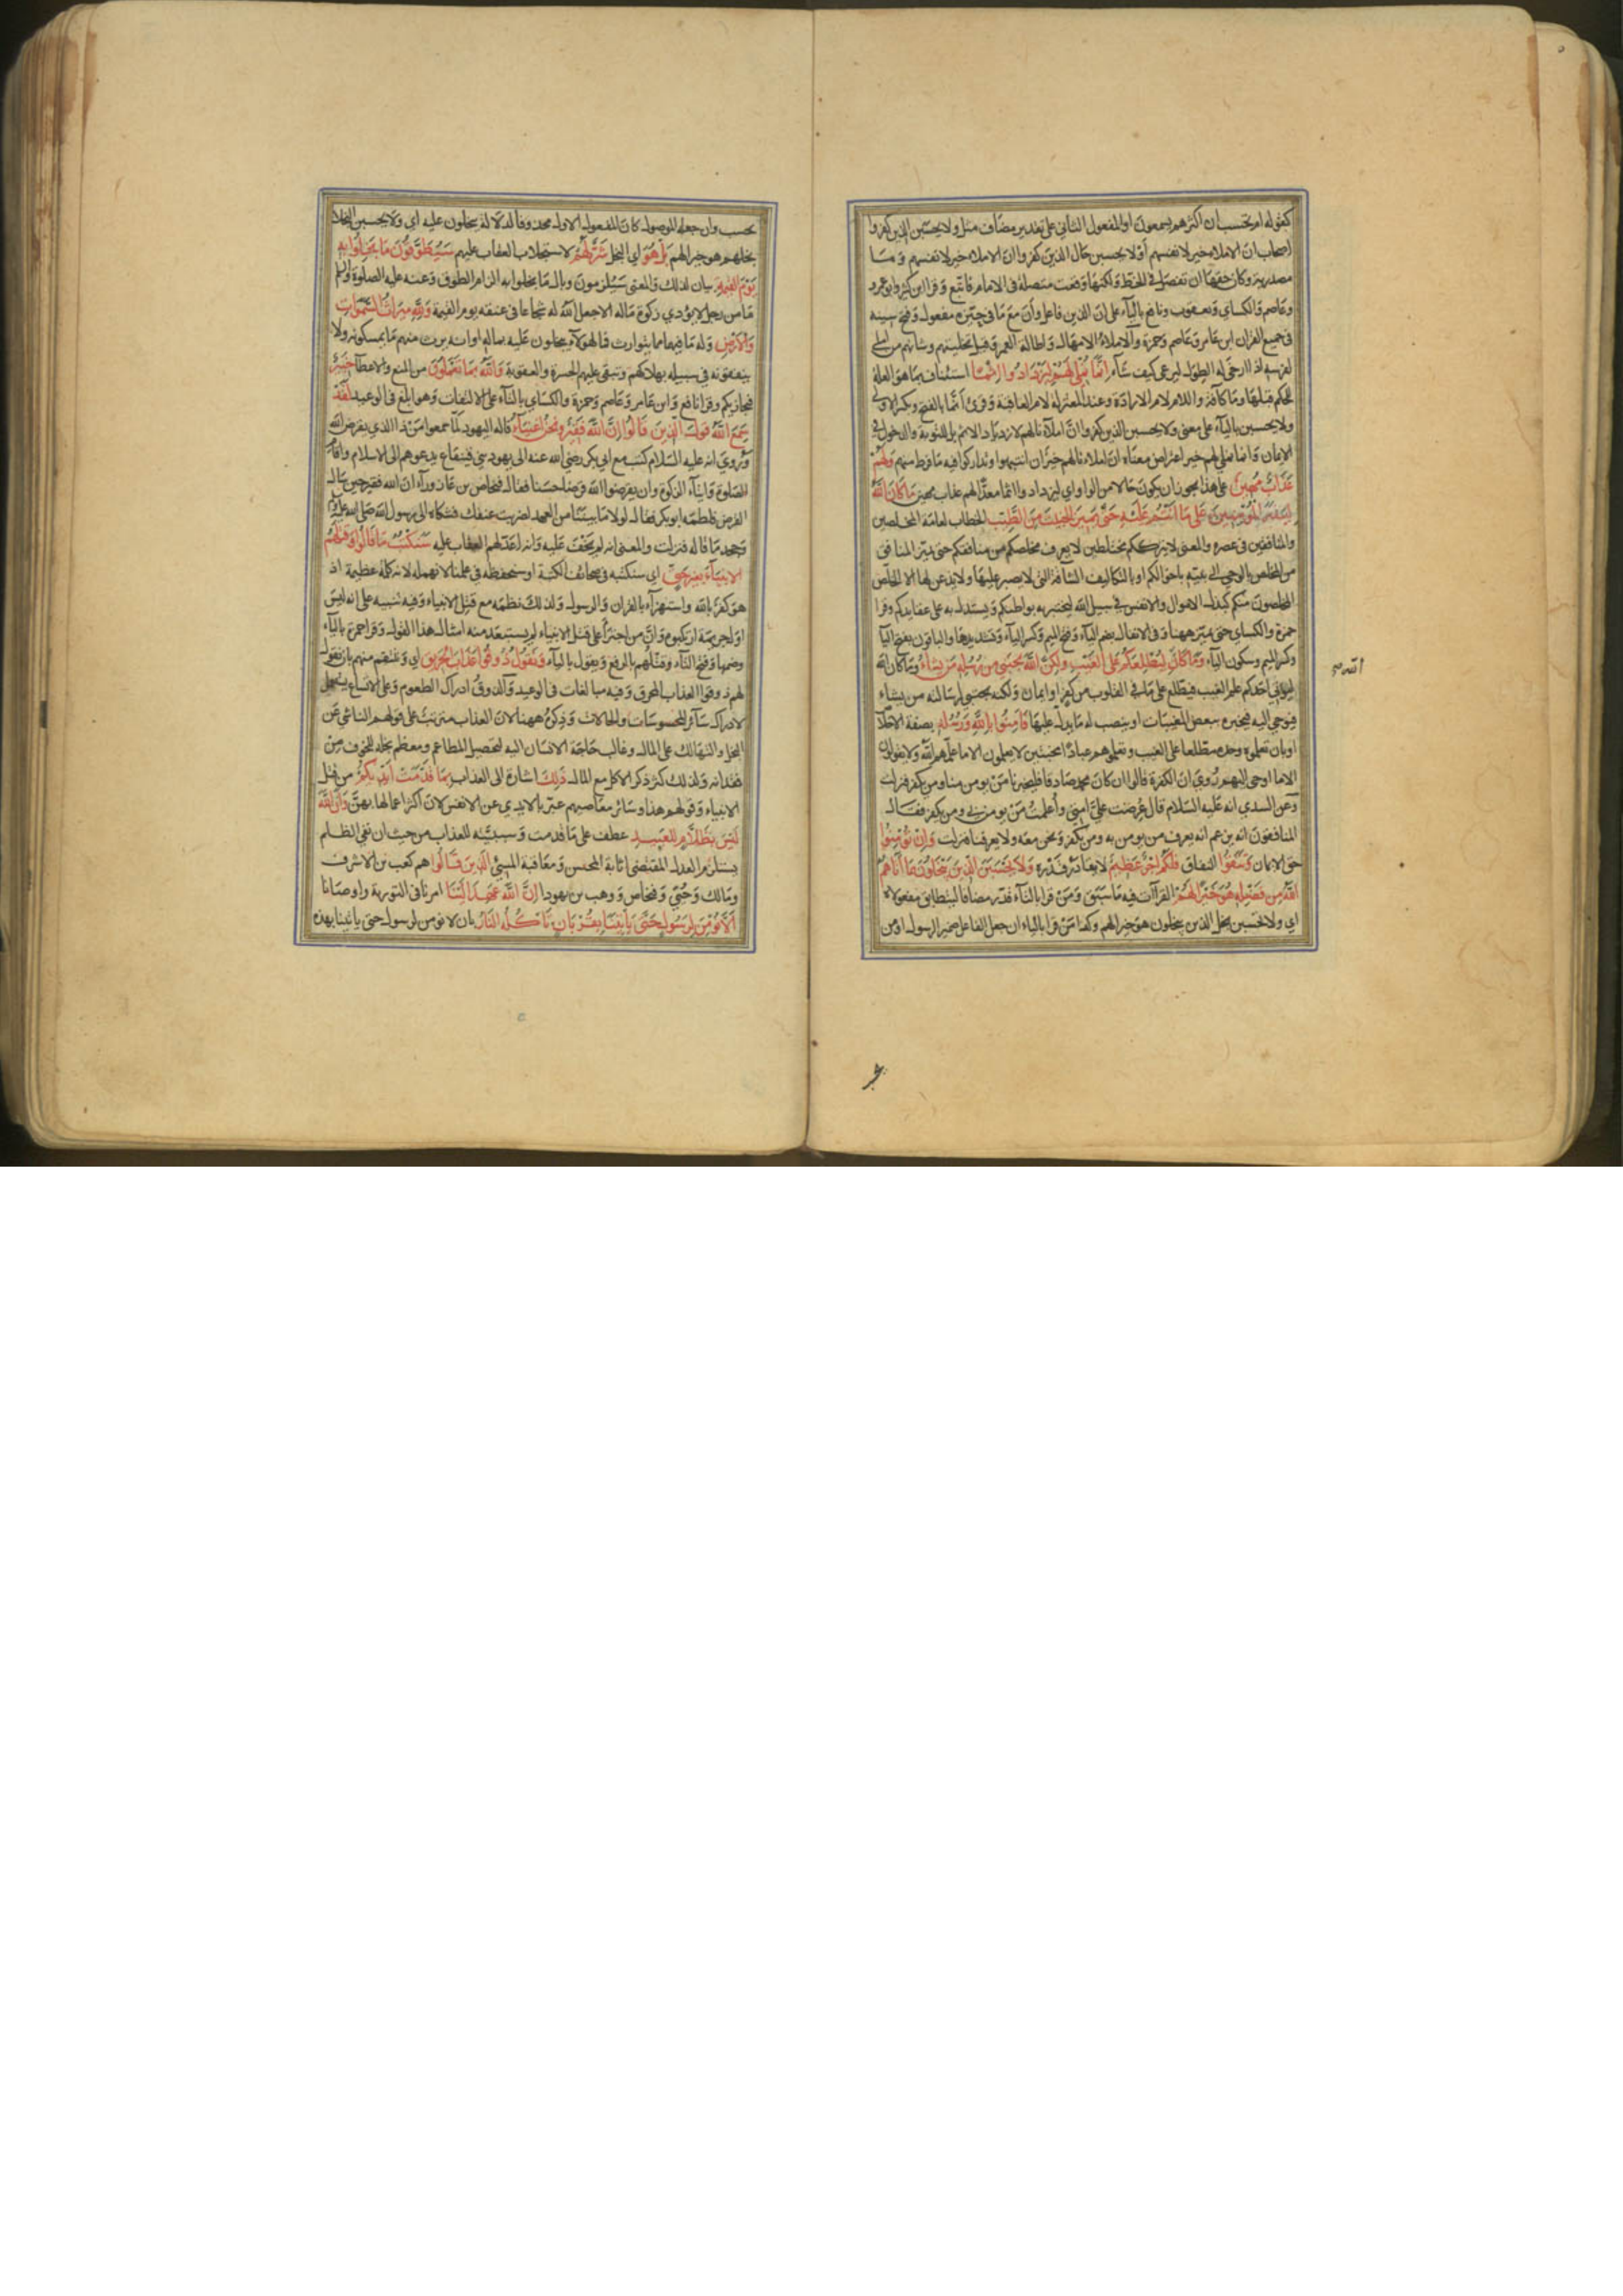 كقوله ام تحسب ان اكثرهم يسمعون او المفعول الثاني على تقدير مضاف مثل ولا يحسبن الذين كفروا
اصحاب ان الاملاء خير لانفسهم او لا يحسبن حال الذين كفروا ان الاملاء خير لانفسهم وما
مصدرية وكان حقها ان تفصل في الخط ولكنها وقعت متصلة في الامام فاتبع وقرا ابن كثير وابو عمرو
وعاصم والكساي ويعقوب بالياء على ان الذين فاعل وأن مع ما في حيزه مفعول وفتح سينه
في جميع القران ابن عامر وعاصم وحمزة والاملاء الامهال واطالة العمر وقيل تخليتهم وشانهم من املى
لفرسه اذا ارخى له الطول ليرعى كيف شآء انما نملي لهم ليزدادوا اثما استئناف بما هو العلة
للحكم قبلها وما كافة واللام لام الارادة وعند المعتزلة لام العاقبة وقرئ أنما بالفتح وبكسر الاولى
ولا يحسبن باليآء على معنى ولا يحسبن الذين كفروا ان املآءنا لهم لازدياد الاثم بل للتوبة والدخول في
الايمان وانما نملي لهم خير اعتراض معناه ان املاءنا لهم خير ان انتبهوا وتداركوا فيه ما فرط منهم ولهم
عذاب مهين على هذا يجوز ان يكون حالا من الواو اي ليزدادوا اثما معدا لهم عذاب مهين ما كان الله
ليذر المؤمنين على ما انتم عليه حتى يميز الخبيث من الطيب الخطاب لعامة المخلصين
والمنافقين في عصره والمعنى لا يترككم مختلطين لا يعرف مخلصكم من منافقكم حتى يميز المنافق
من المخلص بالوحي الى نبيه باحوالكم او بالتكاليف الشاقة التي لا يصبر عليها ولا يذعن لها الا الخلص
المخلصون منكم كبذل الاموال والانفس في سبيل الله ليختبر به بواطنكم ويستدل به على عقايدكم وقرا
حمزة والكساي حتى يميز ههنا وفي الانفال بضم الياء وفتح الميم وكسر الياء وتشديدها والباقون بفتح اليآ
وكسر الميم وسكون الياء وما كان الله ليطلعكم على الغيب ولكن الله يجتبي من رسله من يشاء وما كان الله
ليؤتي احدكم علم الغيب فيطلع على ما في القلوب من كفر او ايمان ولكنه يجتبي لرسالته من يشاء
فيوحي اليه فيخبره ببعض المغيبات او ينصب له ما يدل عليها فآمنوا بالله ورسله بصفة الاخلاص
او بان تعلموه وحده مطلعا على الغيب وتعلموهم عبادا مجتبين لا يعلمون الا ما علمهم الله ولا يقولون
الا ما اوحي اليهم روي ان الكفرة قالوا ان كان محمد صادقا فليخبرنا من يومن منا ومن يكفر فنزلت
وعن السدي انه عليه السلام قال عرضت علي امتي وأعلمت من يومن بي ومن يكفر فقال
المنافقون انه يزعم انه يعرف من يومن به ومن يكفر ونحن معه ولا يعرفنا فنزلت وان تؤمنوا
حق الايمان وتتقوا النفاق فلكم اجر عظيم لا يقادر قدره ولا يحسبن الذين يبخلون بما آتاهم
الله من فضله هو خيرا لهم القراآت فيه ما سبق ومن قرا بالتآء قدر مضافا ليتطابق مفعولاه
اي ولا تحسبن بخل الذين يبخلون هو خيرا لهم وكذا من قرا بالياء ان جعل الفاعل ضمير الرسول او من
الله
يحسب وان جعله الموصول كان المفعول الاول محذوفا لدلالة يبخلون عليه اي ولا يحسبن البخلا
بخلهم هو خيرا لهم بل هو اي البخل شر لهم لاستجلاب العقاب عليهم سيطوقون ما بخلوا به
يوم القيمة بيان لذلك والمعنى سيلزمون وبال ما بخلوا به الزام الطوق وعنه عليه الصلوة والسلم
ما من رجل لا يؤدي زكوة ماله الا جعل الله له شجاعا في عنقه يوم القيمة ولله ميراث السموات
والارض وله ما فيهما مما يتوارث فما لهولاء يبخلون عليه بماله او انه يرث منهم ما يمسكونه ولا
ينفقونه في سبيله بهلاكهم وتبقى عليهم الحسرة والعقوبة والله بما تعملون من المنع والاعطآ خبير
فيجازيكم وقرا نافع وابن عامر وعاصم وحمزة والكساي بالتآء على الالتفات وهو ابلغ في الوعيد لقد
سمع الله قول الذين قالوا ان الله فقير ونحن اغنيآء قاله اليهود لما سمعوا من ذا الذي يقرض الله
وروي انه عليه السلام كتب مع ابي بكر رضي الله عنه الى يهود بني قينقاع يدعوهم الى الاسلام واقام
الصلوة وايتآء الزكوة وان يقرضوا الله قرضا حسنا فقال فنحاص بن عازوراء ان الله فقير حين سال
القرض فلطمه ابو بكر وقال لولا ما بيننا من العهد لضربت عنقك فشكاه الى رسول الله صلى الله عليه وسلم
وجحد ما قاله فنزلت والمعنى انه لم يخف عليه وانه اعد لهم العقاب عليه سنكتب ما قالوا وقتلهم
الانبيآء بغير حق اي سنكتبه في صحائف الكتبة او سنحفظه في علمنا لا نهمله لانه كلمة عظيمة اذ
هو كفر بالله واستهزآء بالقران والرسول ولذلك نظمه مع قتل الانبياء وفيه تنبيه على انه ليس
اول جريمة ارتكبوها وان من اجترأ على قتل الانبياء لم يستبعد منه امثال هذا القول وقرا حمزة بالياء
وضمها وفتح التآء وقتلهم بالرفع ويقول بالياء ونقول ذوقوا عذاب الحريق اي وننتقم منهم بان نقول
لهم ذوقوا العذاب المحرق وفيه مبالغات في الوعيد والذوق ادراك الطعوم وعلى الاتساع يستعمل
لادراك سآئر المحسوسات والحالات وذكره ههنا لان العذاب مترتب على قولهم الناشي عن
البخل والتهالك على المال وغالب حاجة الانسان اليه لتحصيل المطاعم ومعظم بخله للخوف من
فقدانه ولذلك كثر ذكر الاكل مع المال ذلك اشارة الى العذاب بما قدمت ايديكم من قتل
الانبياء وقولهم هذا وسائر معاصيهم عبر بالايدي عن الانفس لان اكثر اعمالها بهن وان الله
ليس بظلام للعبيد عطف على ما قدمت وسببيته للعذاب من حيث ان نفي الظلم
يستلزم العدل المقتضي اثابة المحسن ومعاقبة المسيئ الذين قالوا هم كعب بن الاشرف
ومالك وحيي وفنحاص ووهب بن يهودا ان الله عهد الينا امرنا في التورية واوصانا
الا نؤمن لرسول حتى يأتينا بقربان تأكله النار بان لا نومن لرسول حتى ياتينا بهذه